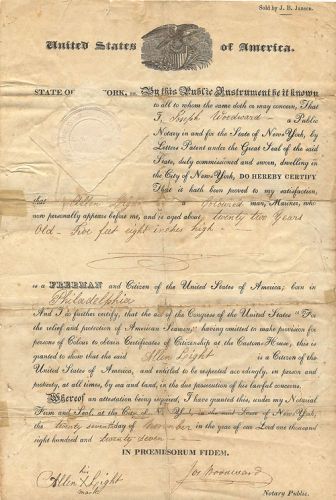 Sold by J. B. Jansen.
United States of America.
STATE OF YORK, ss. By this Public Instrument be it known
to all to whom the same doth or may concern, That
I, Joseph Woodward a Public
Notary in and for the State of New-York, by
Letters Patent under the Great Seal of the said
State, duly commissioned and sworn, dwelling in
the City of New-York, DO HEREBY CERTIFY
That it hath been proved to my satisfaction,
that Allen Light a Coloured man, Mariner, who
now personally appears before me, and is aged about twenty two Years
Old - Five feet eight inches high
is a FREEMAN and Citizen of the United States of America; born in
Philadelphia
And I do further certify, that the act of the Congress of the United States "For
the relief and protection of American Seamen," having omitted to make provision for
persons of Colour to obtain Certificates of Citizenship at the Custom House, this is
granted to show that the said Allen Light is a Citizen of the
United States of America, and entitled to be respected accordingly, in person and
property, at all times, by sea and land, in the due prosecution of his lawful concerns.
Whereof an attestation being required, I have granted this, under my Notarial
Form and Seal, at the City of New-York, in the said State of New-York,
the twenty day of November in the year of our Lord one thousand
eight hundred and twenty seven
IN PRŒMISORUM FIDEM.
his
Allen X Light
mark
Jos Woodward
Notary Public.